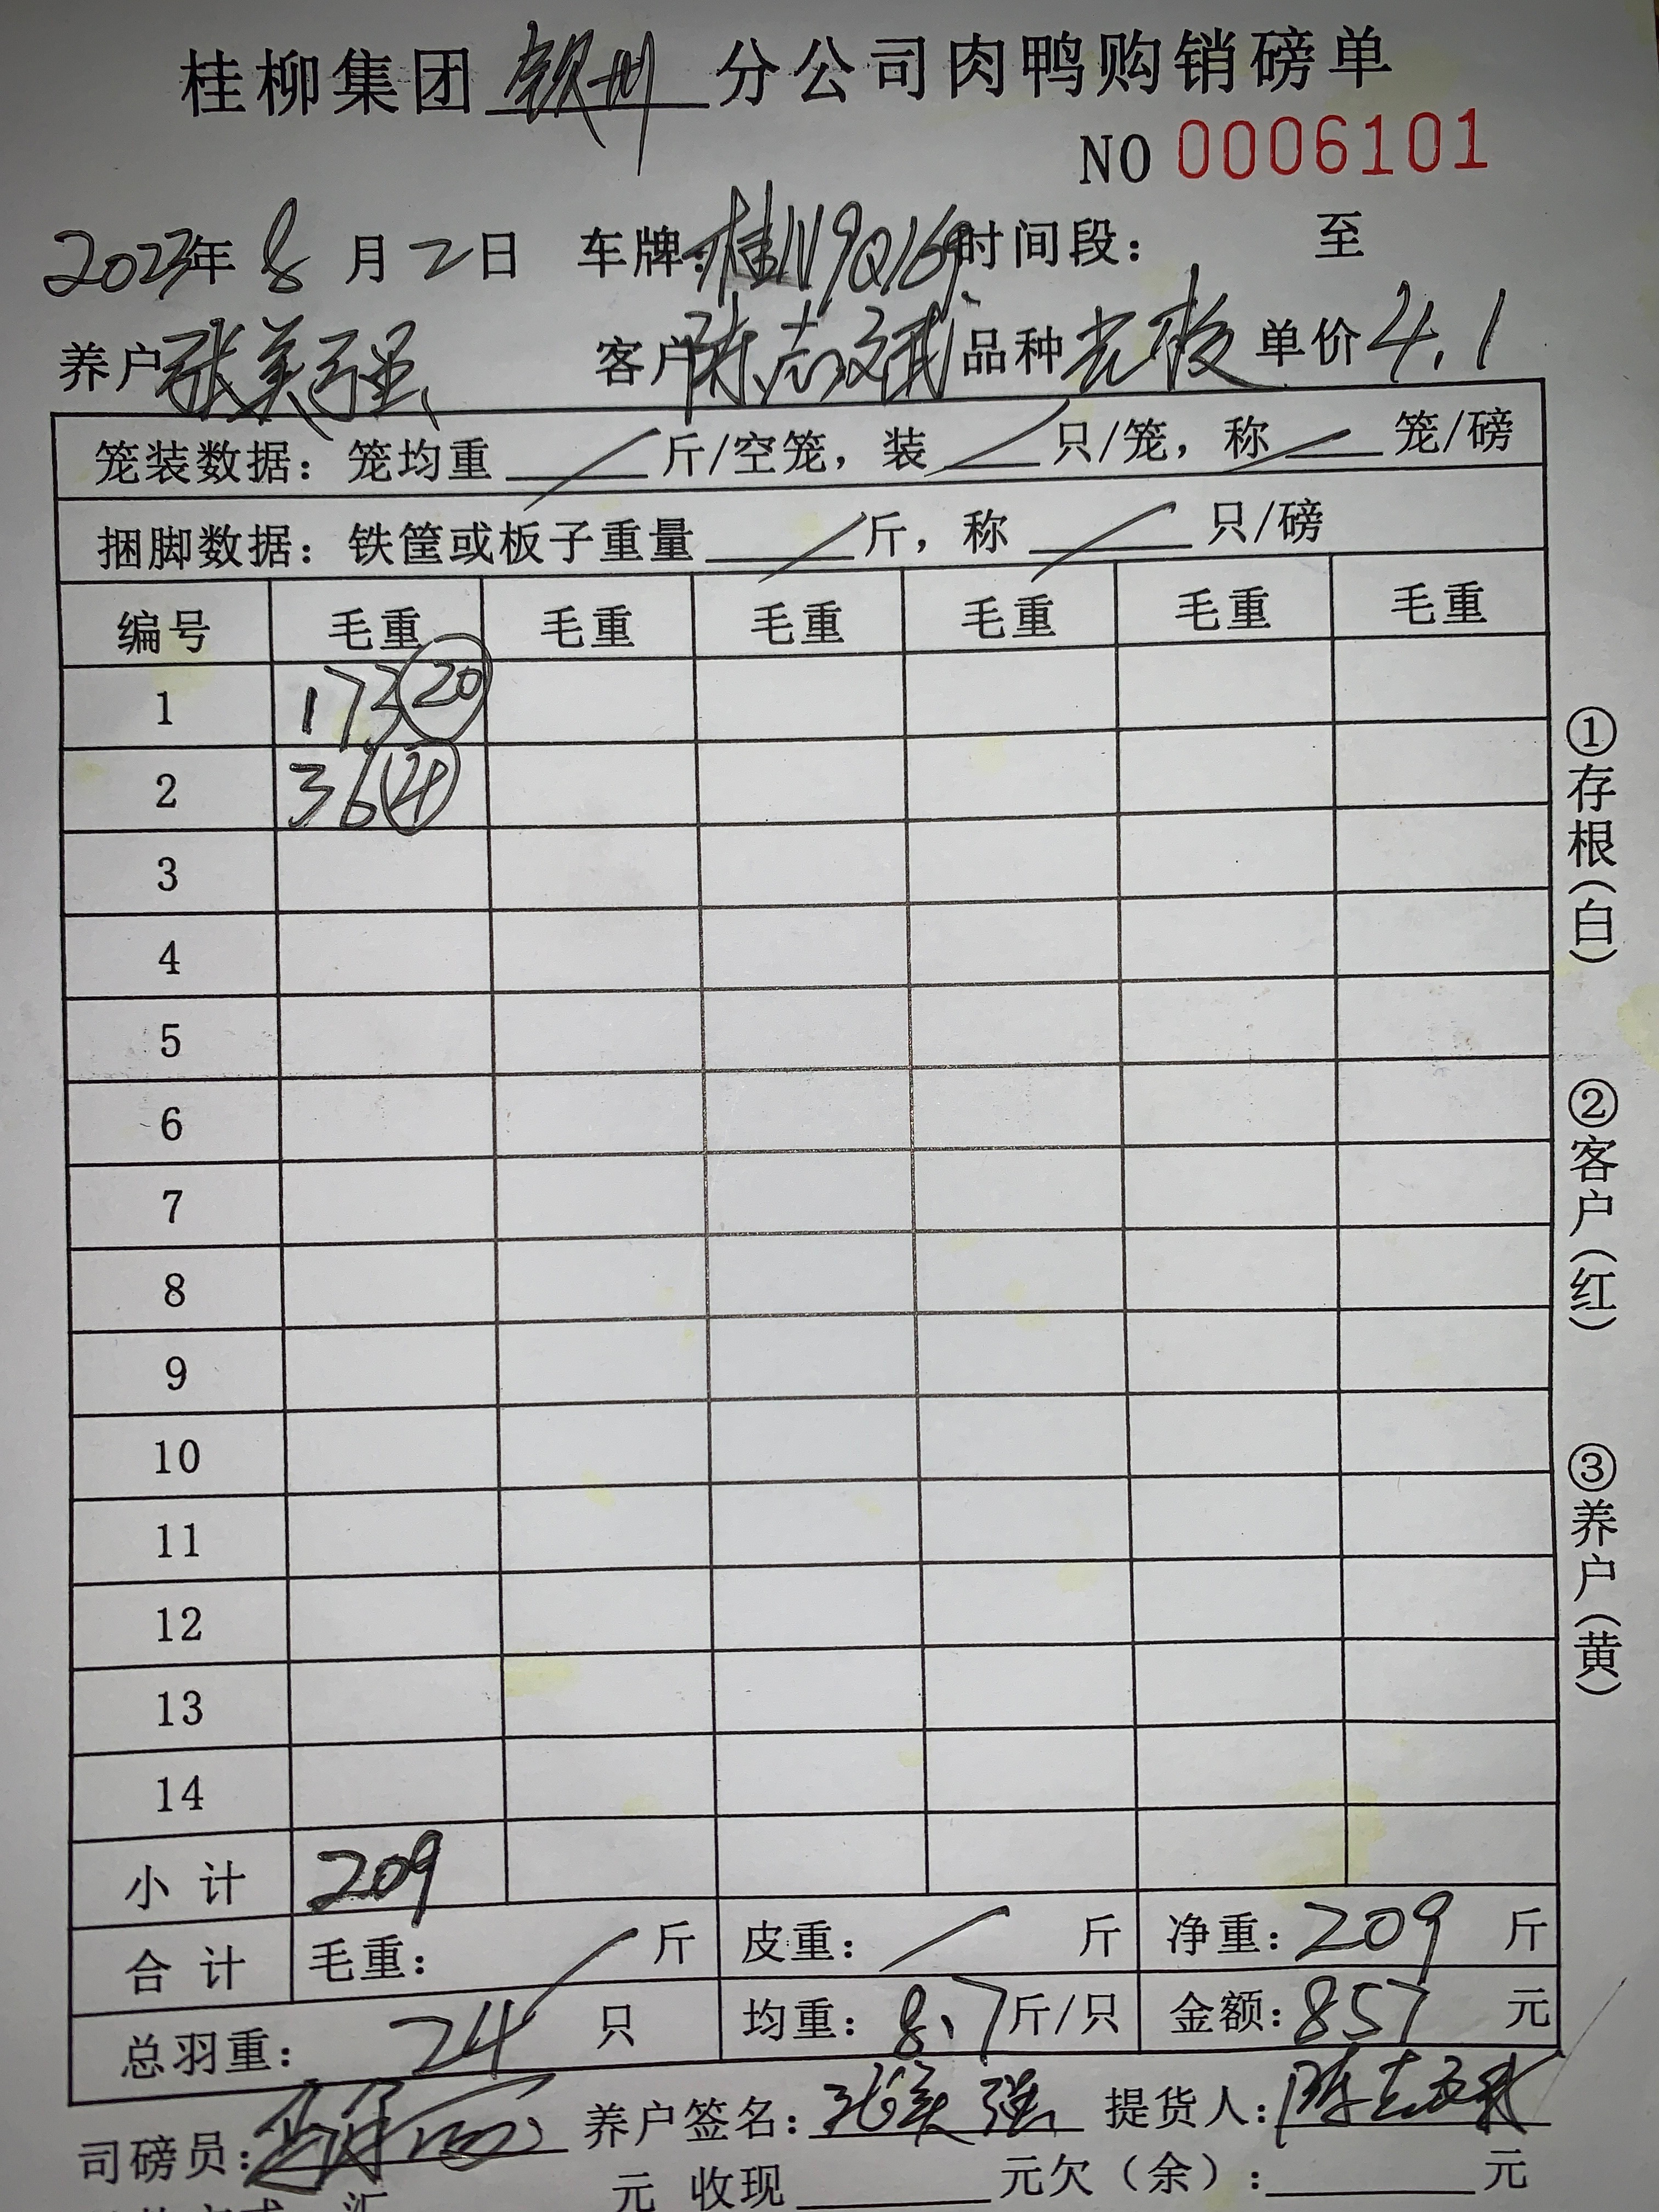 桂柳集团 钦州 分公司肉鸭购销磅单
NO 0006101
2023年 8 月 2 日 车牌:桂N9Q169 时间段: 至
养户 张美强 客户 陈志斌 品种 单价 4.1
笼装数据:笼均重 / 斤/空笼,装 / 只/笼,称 / 笼/磅
捆脚数据:铁筐或板子重量 / 斤,称 / 只/磅
编号 毛重 毛重 毛重 毛重 毛重 毛重
1 173 20
2 36 4
3
4
5
6
7
8
9
10
11
12
13
14
小 计 209
合 计 毛重: / 斤 皮重: / 斤 净重:209 斤
总羽重: 24 只 均重:8.7斤/只 金额:857 元
司磅员: 养户签名:张美强 提货人:陈志斌
元 收现 元欠(余): 元
①存根(白)
②客户(红)
③养户(黄)